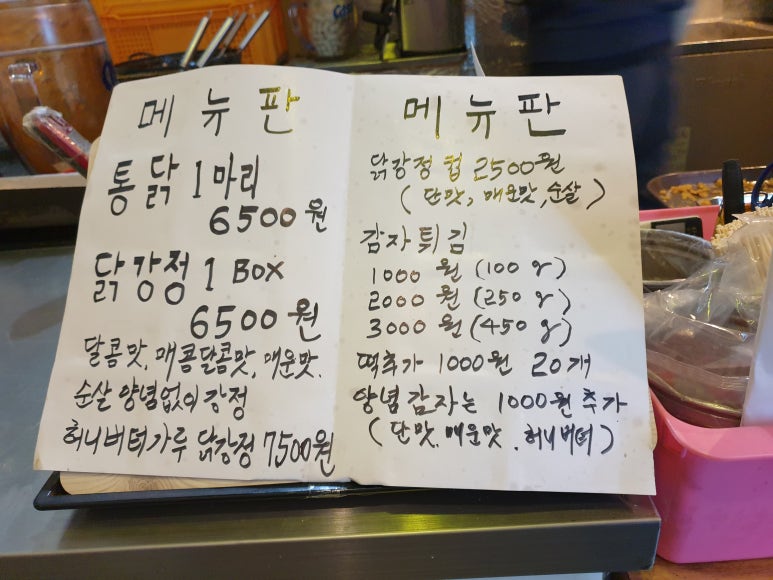 메뉴판
통닭 1마리
6500원
닭강정 1 BOX
6500원
달콤맛, 매콤달콤맛, 매운맛.
순살 양념없이 강정
허니버터가루 닭강정 7500원
메뉴판
닭강정 컵 2500원
(단맛, 매운맛, 순살)
감자튀김
1000원 (100g)
2000원 (250g)
3000원 (450g)
떡추가 1000원 20개
양념감자는 1000원추가
(단맛. 매운맛. 허니버터)